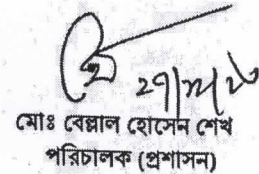 মোঃ বেল্লাল হোসেন শেখ
পরিচালক (প্রশাসন)